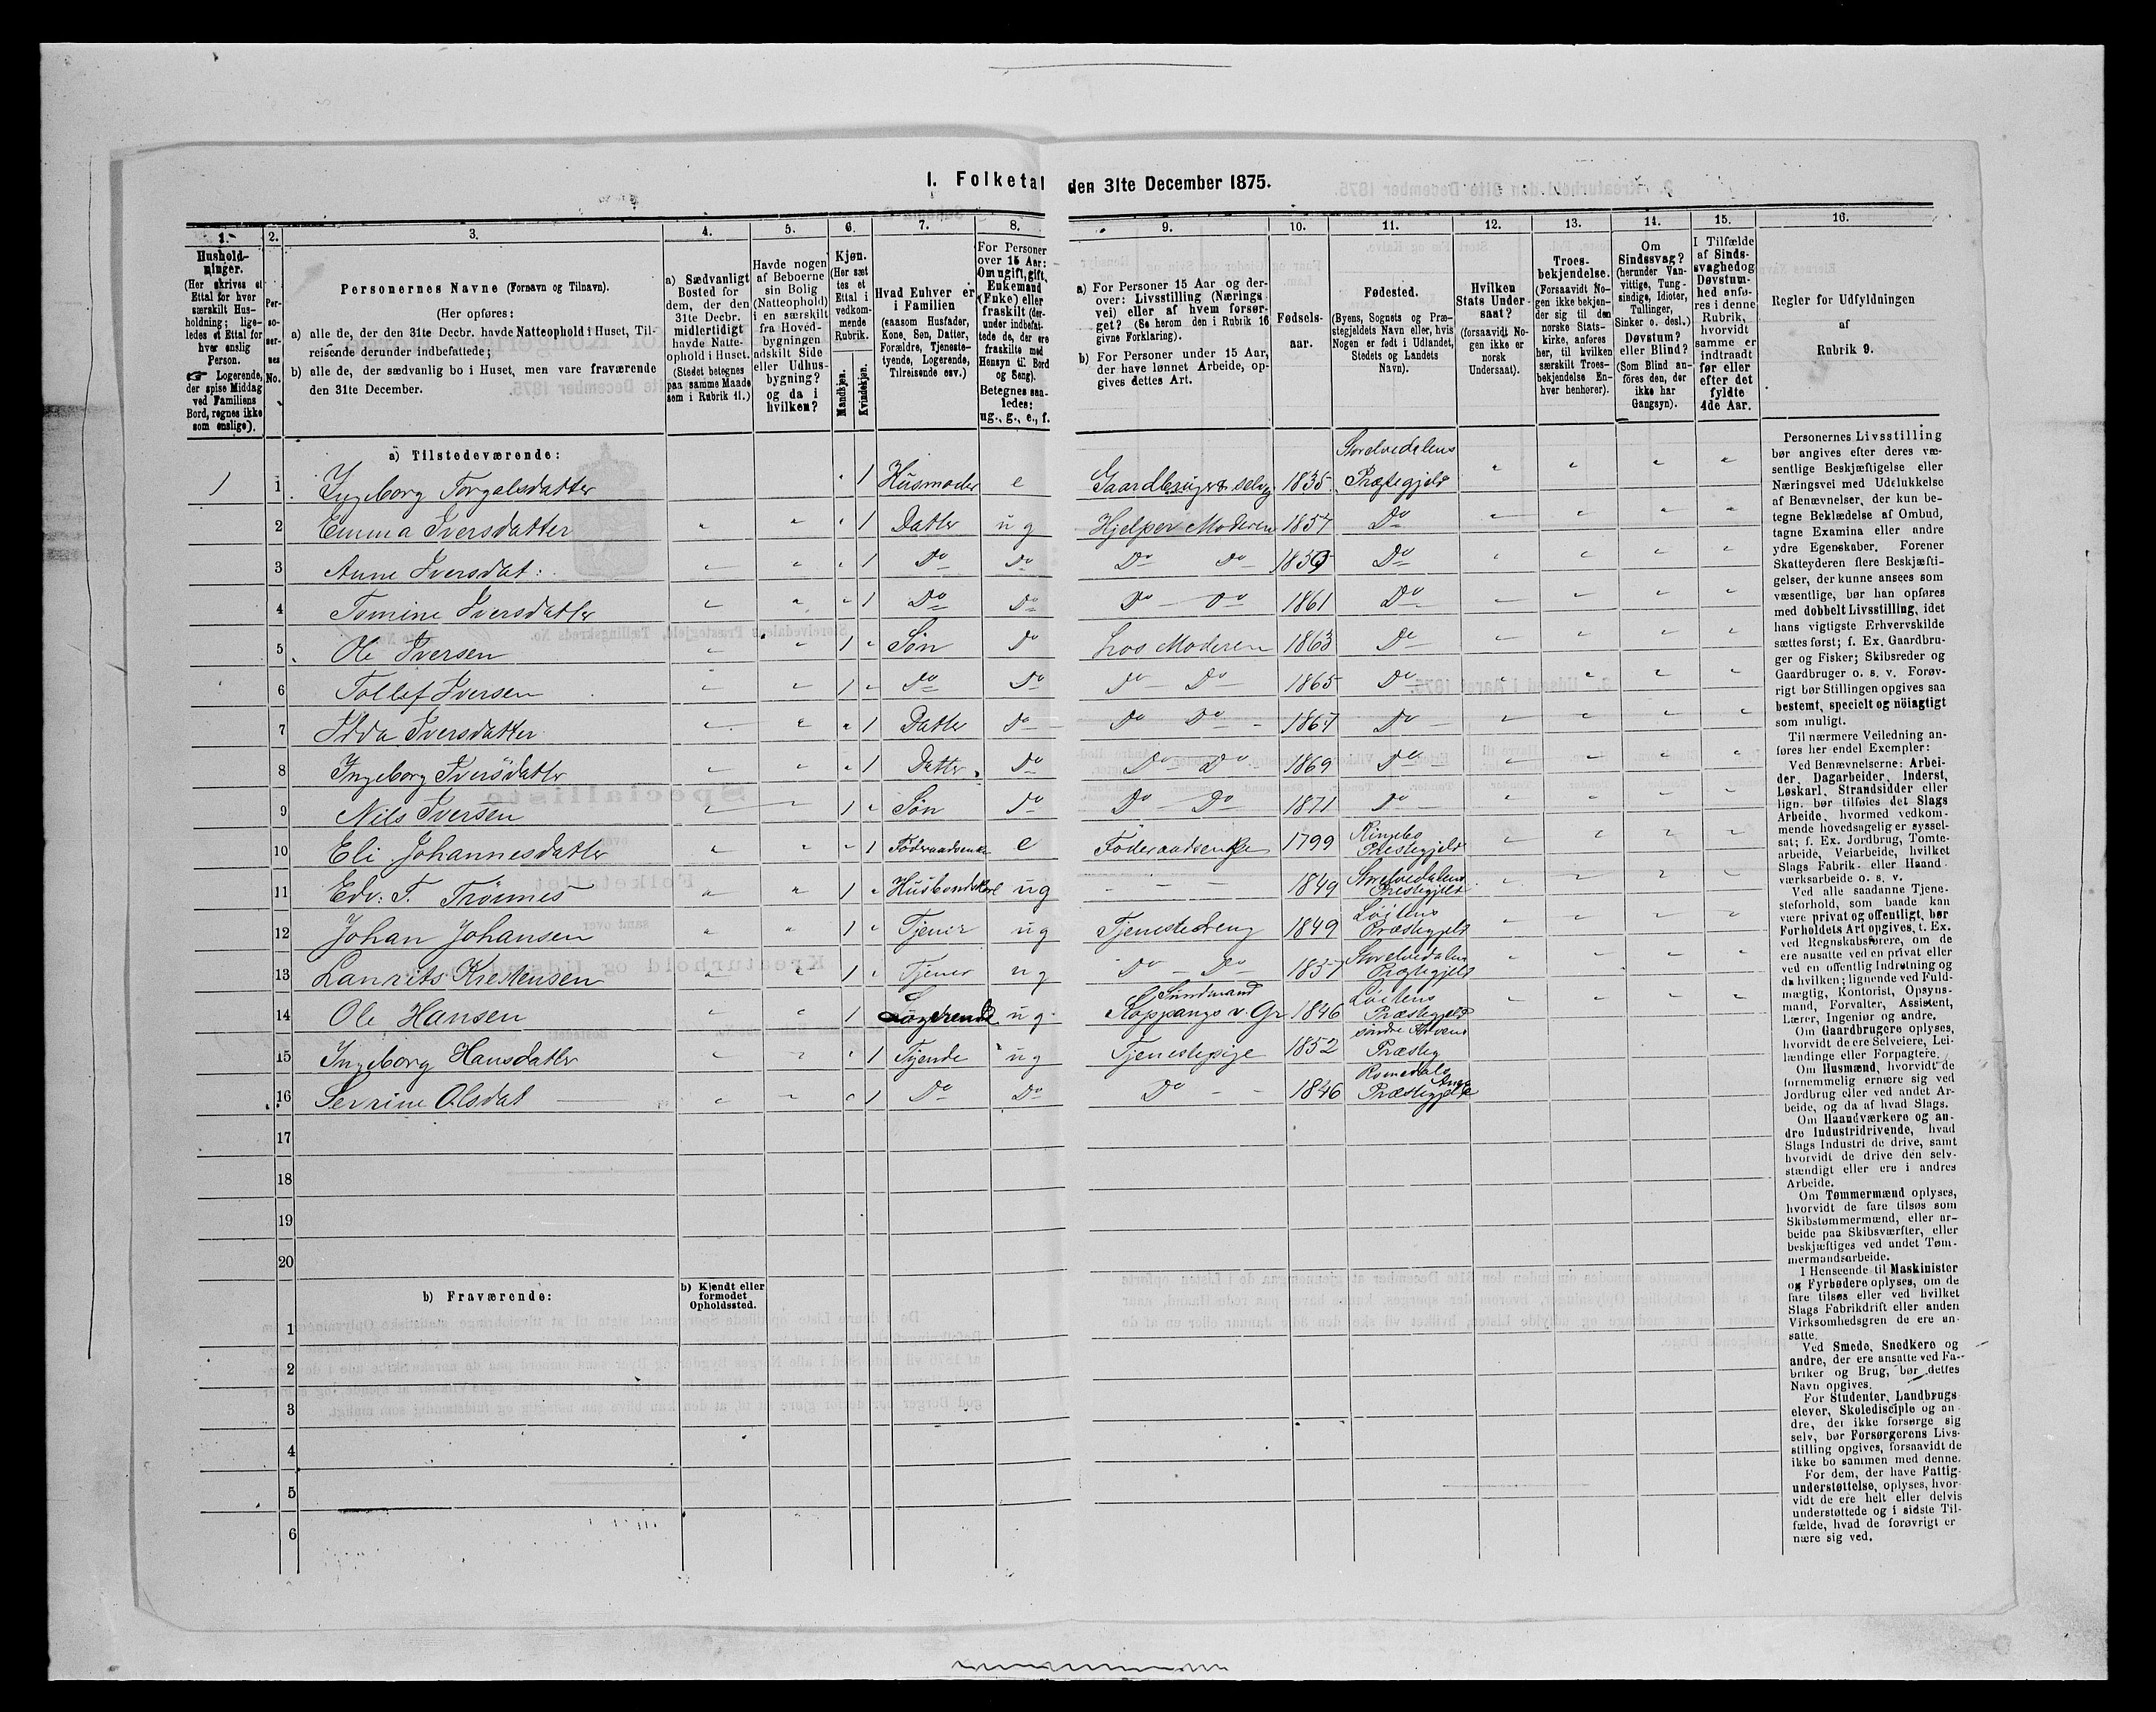 1. Folketal den 31te December 1875.
1. 2. 3. 4. 5. 6. 7. 8. 9. 10. 11. 12. 13. 14. 15. 16.
Hushold-
ninger.
(Her skrives et
Ettal for hver
særskilt Hus-
holdning; lige-
ledes et Ettal for
hver enslig
Person.
☞ Logerende,
der spise Middag
ved Familiens
Bord, regnes ikke
som enslige).
Per-
so-
ner-
nes
No.
Personernes Navne (Fornavn og Tilnavn).
(Her opføres:
a) alle de, der den 31te Decbr. havde Natteophold i Huset, Til-
reisende derunder indbefattede;
b) alle de, der sædvanlig bo i Huset, men vare fraværende
den 31te December.
a) Sædvanligt
Bosted for
dem, der den
31te Decbr.
midlertidigt
havde Natte-
ophold i Huset.
(Stedet betegnes
paa samme Maade
som i Rubrik 11.)
Havde nogen
af Beboerne
sin Bolig
(Natteophold)
i en særskilt
fra Hoved-
bygningen
adskilt Side
eller Udhus-
bygning?
og da i
hvilken?
Kjøn.
(Her sæt
tes et
Ettal i
vedkom-
mende
Rubrik.
Mandkjøn.
Kvindekjøn.
Hvad Enhver er
i Familien
(saasom Husfader,
Kone, Søn, Datter,
Forældre, Tjeneste-
tyende, Logerende,
Tilreisende osv.)
For Personer
over 15 Aar:
Om ugift, gift,
Enkemand
(Enke) eller
fraskilt (der-
under indbefat-
tede de, der ere
fraskilte med
Hensyn til Bord
og Seng).
Betegnes saa-
ledes:
ug., g., e., f.
a) For Personer 15 Aar og der-
over: Livsstilling (Nærings
vei) eller af hvem forsør-
get? (Se herom den i Rubrik 16
givne Forklaring).
b) For Personer under 15 Aar,
der have lønnet Arbeide, op-
gives dettes Art.
Fødsels-
aar.
Fødested.
(Byens, Sognets og Præ-
stegjeldets Navn eller, hvis
Nogen er født i Udlandet,
Stedets og Landets
Navn).
Hvilken
Stats Under-
saat?
(forsaavidt No-
gen ikke er
norsk
Undersaat).
Troes-
bekjendelse.
(Forsaavidt No-
gen ikke bekjen-
der sig til den
norske Stats-
kirke, anføres
her, til hvilken
særskilt Troes-
bekjendelse En-
hver henhører).
Om
Sindssvag?
(herunder Van-
vittige, Tung-
sindige, Idioter,
Tullinger,
Sinker o. desl.)
Døvstum?
eller Blind?
(Som Blind an-
föres den, der
ikke har
Gangsyn).
I Tilfælde
af Sinds-
svaghed og
Døvstum-
hed anfø-
res i denne
Rubrik,
hvorvidt
samme er
indtraadt
før eller
efter det
fyldte
4de Aar.
Regler for Udfyldningen
af
Rubrik 9.
a) Tilstedeværende:
1 1 Ingeborg Torgalsdatter 1 Husmoder e Gaardbruger selvej 1835 Storelvedalens Præstegjeld
2 Emma Iversdatter 1 Datter ug Hjelper Moderen 1857 Do
3 Anne Iversdat: 1 Do Do Do Do 1859 Do
4 Tomine Iversdatter 1 Do Do Do Do 1861 Do
5 Ole Iversen 1 Søn Do hos Moderen 1863 Do
6 Tollef Iversen 1 Do Do Do Do 1865 Do
7 Idda Iversdatter 1 Datter Do Do Do 1867 Do
8 Ingeborg Iversdatter 1 Datter Do Do Do 1869 Do
9 Nils Iversen 1 Søn Do Do Do 1871 Do
10 Eli Johannesdatter 1 Føderaadsenke e Føderaadsenke 1799 Ringebo Præstegjeld
11 Edv: T. Trönnes 1 Husbondskarl ug 1849 Storelvedalens Præstegjeld
12 Johan Johansen 1 Tjener ug Tjenestedreng 1849 Löitens Præstegjeld
13 Laurits Kristensen 1 Tjener ug Do Do 1857 Storelvedalens Præstegjeld
14 Ole Hansen 1 Logerende ug Koppangs v Gr 1846 Löitens Præstegjeld
15 Ingeborg Hansdatter 1 Tyende ug Tjenestepige 1852 söndre Præsteg
16 Serine Olsdat 1 Do Do Do 1846 Romedals Præstegjeld
17
18
19
20
b) Fraværende:
b) Kjendt eller
formodet
Opholdssted.
1
2
3
4
5
6
Personernes Livsstilling
bør angives efter deres væ-
sentlige Beskjæftigelse eller
Næringsvei med Udelukkelse
af Benævnelser, der kun be-
tegne Beklædelse af Ombud,
tagne Examina eller andre
ydre Egenskaber. Forener
Skatteyderen flere Beskjæfti-
gelser, der kunne ansees som
væsentlige, bør han opføres
med dobbelt Livsstilling, idet
hans vigtigste Erhvervskilde
sættes først; f. Ex. Gaardbru-
ger og Fisker; Skibsreder og
Gaardbruger o. s. v. Forøv-
rigt bør Stillingen opgives saa
bestemt, specielt og nöiagtigt
som muligt.
Til nærmere Veiledning an-
føres her endel Exempler:
Ved Benævnelserne: Arbei-
der, Dagarbeider, Inderst,
Løskarl, Strandsidder eller
lign. bør tilføies det Slags
Arbeide, hvormed vedkom-
mende hovedsagelig er syssel-
sat; f. Ex. Jordbrug, Tomte-
arbeide, Veiarbeide, hvilket
Slags Fabrik- eller Haand
værksarbeide o. s. v.
Ved alle saadanne Tjene-
steforhold, som baade kan
være privat og offentligt, bør
Forholdets Art opgives, t. Ex.
ved Regnskabsførere, om de
ere ansatte ved en privat eller
ved en offentlig Indretning og
da hvilken; lignende ved Fuld-
mægtig, Kontorist, Opsyns-
mand, Forvalter, Assistent,
Lærer, Ingeniør og andre.
Om Gaardbrugere oplyses,
hvorvidt de ere Selveiere, Lei-
lændinge eller Forpagtere.
Om Husmænd, hvorvidt de
fornemmelig ernære sig ved
Jordbrug eller ved andet Ar-
beide, og da af hvad Slags.
Om Haandværkere og an-
dre Industridrivende, hvad
Slags Industri de drive, samt
hvorvidt de drive den selv-
stændigt eller ere i andres
Arbeide.
Om Tømmermænd oplyses,
hvorvidt de fare tilsøs som
Skibstømmermænd, eller ar-
beide paa Skibsværfter, eller
beskjæftiges ved andet Tøm-
mermandsarbeide.
I Henseende til Maskinister
og Fyrbødere oplyses, om de
fare tilsøs eller ved hvilket
Slags Fabrikdrift eller anden
Virksomhedsgren de ere an-
satte.
Ved Smede, Snedkere og
andre, der ere ansatte ved Fa-
briker og Brug, bør dettes
Navn opgives.
For Studenter, Landbrugs
elever, Skoledisciple og an-
dre, der ikke forsørge sig
selv, bør Forsørgerens Livs-
stilling opgives, forsaavidt de
ikke bo sammen med denne.
For dem, der have Fattig-
understøttelse, oplyses, hvor-
vidt de ere helt eller delvis
understøttede og i sidste Til-
fælde, hvad de forøvrigt er
nære sig ved.